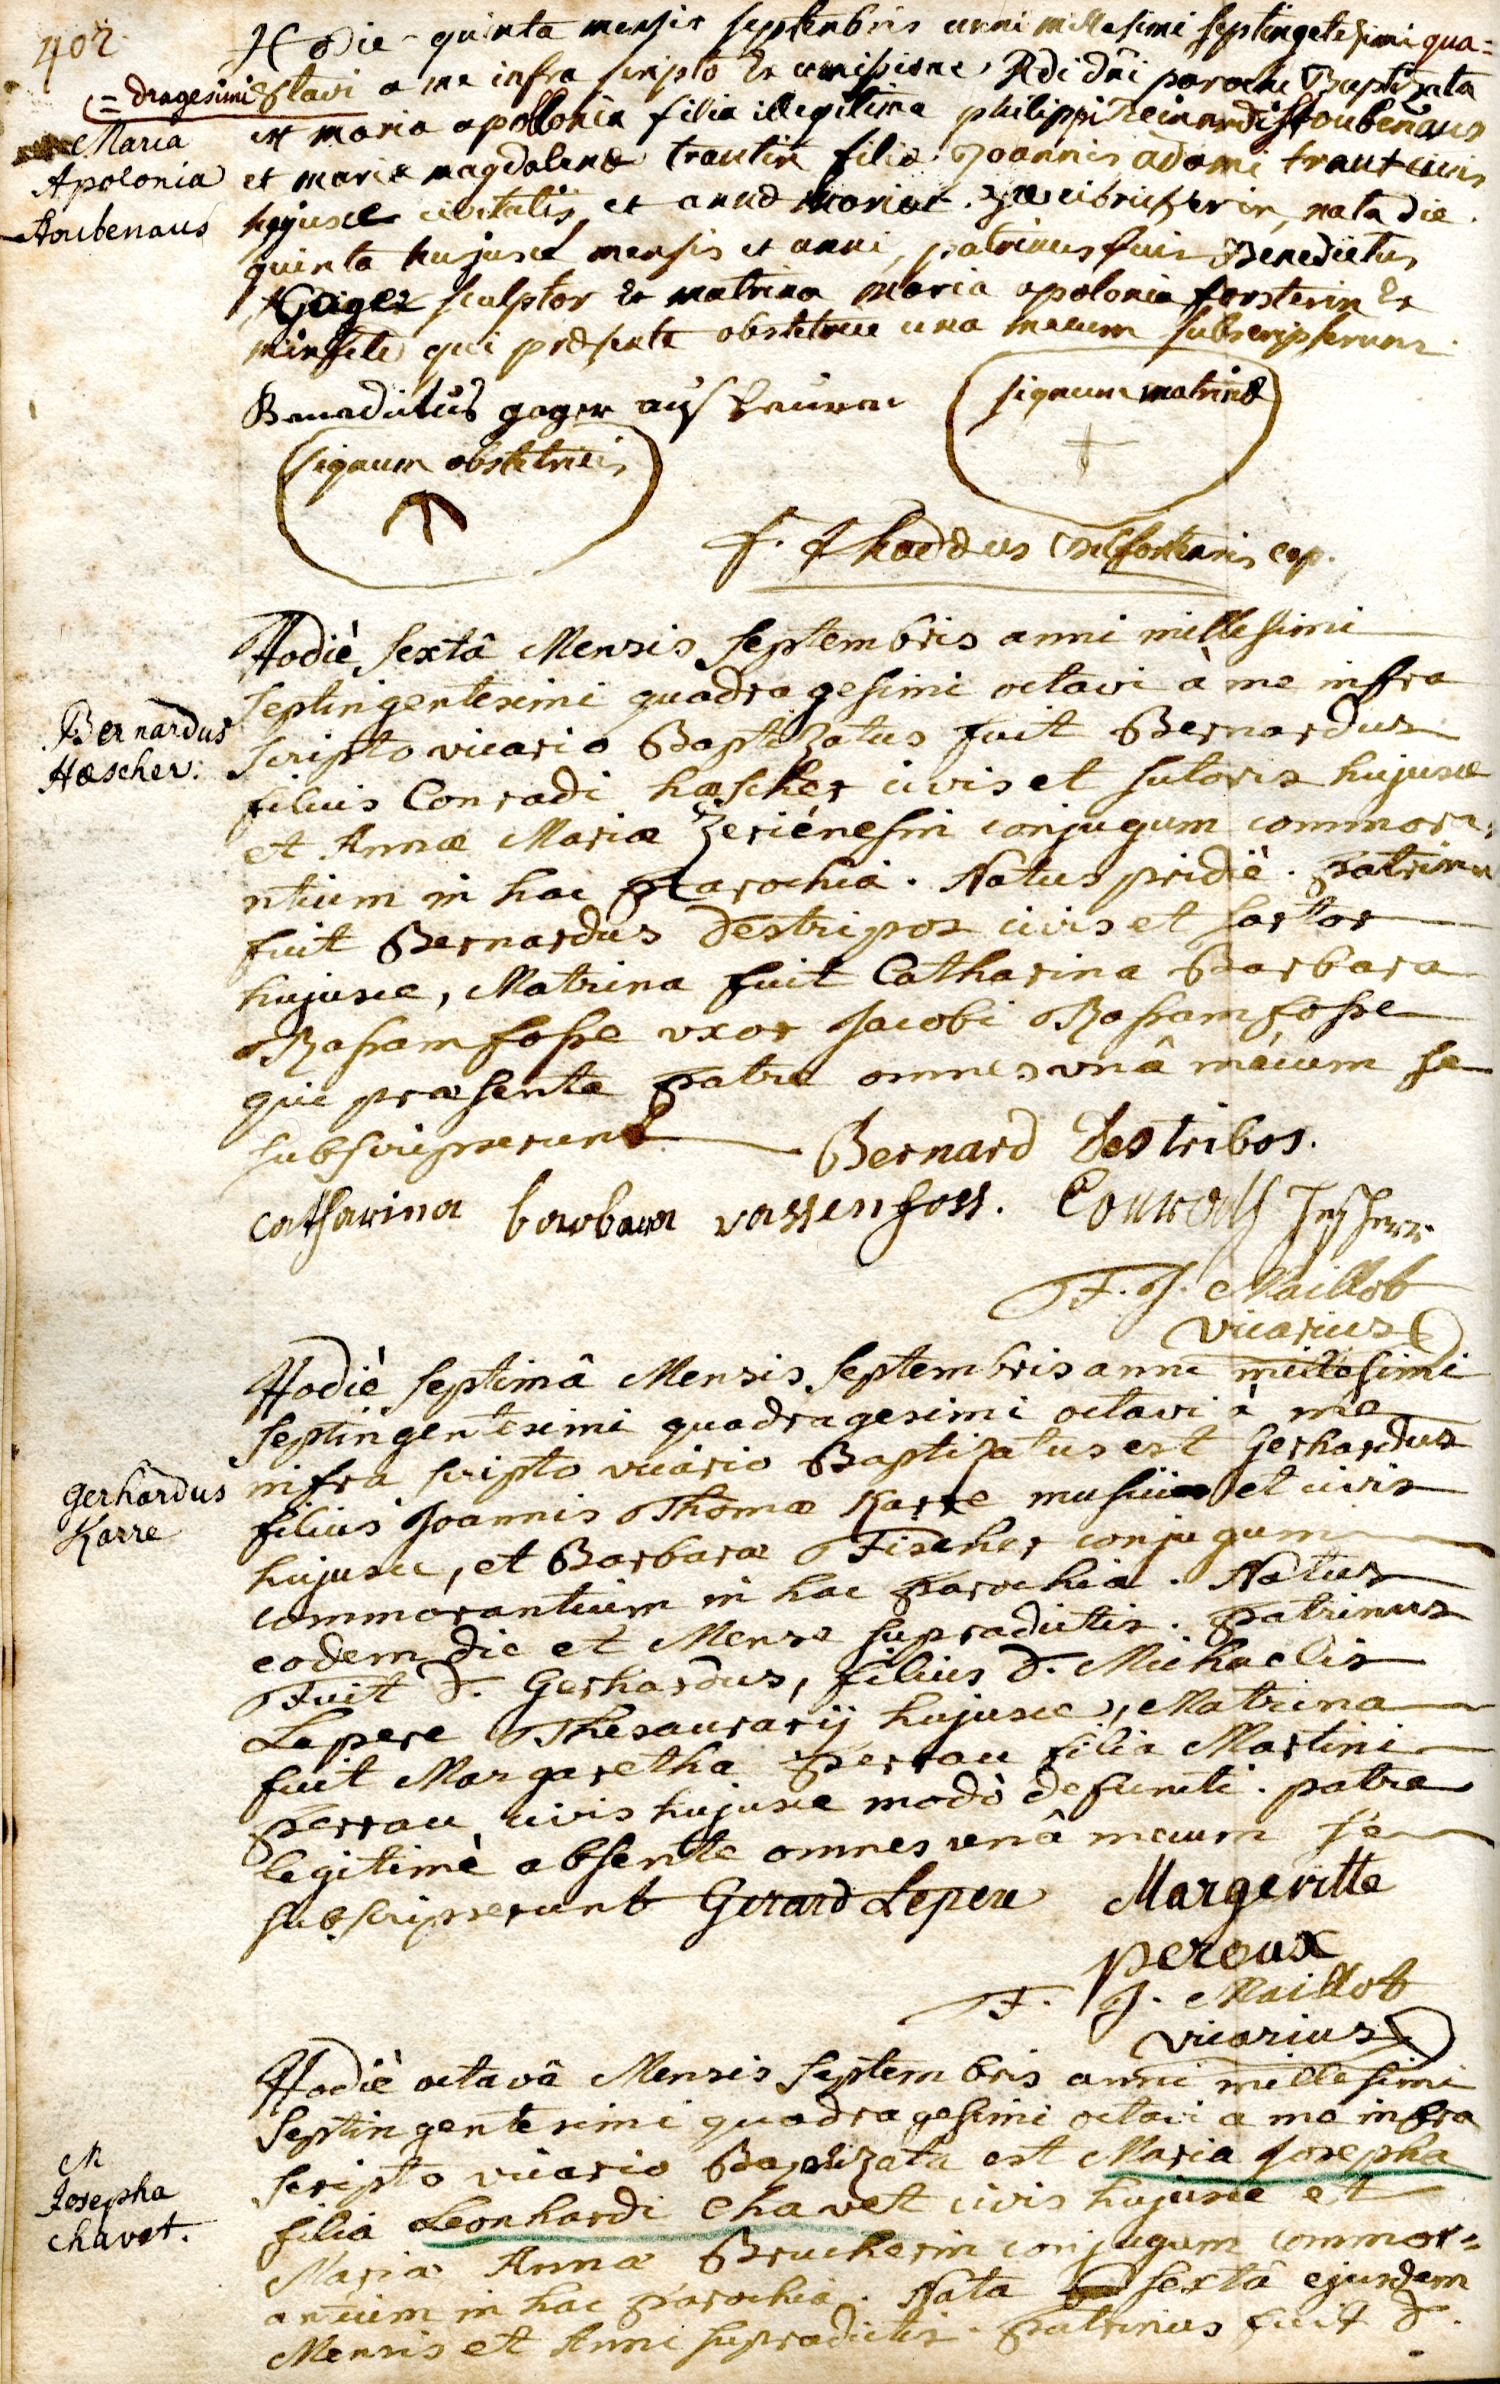 402
Hodie quinta mensis septembris anni millesimi septingetesimi qua=
= dragesimi octavi a me infra scripto Ex comissione Rdi dni parochi Baptizata
est maria apollonia filia illegitima philippi Reinardi stoubenaus
et mariæ magdalenæ trautin filiæ Joannis adami traut civis
hujusce civitatis et annæ mariæ nata die
quinta hujusce mensis et anni, patrinus fuit Benedictus
Geiger sculptor Et matrina maria apolonia forsterin Ex
qui præsente obstetrice una mecum subscripserunt.
Maria
Apolonia
Stoubenaus
Benadictus gager
signum matrinæ
signum obstetricis
f. Thaddæus cap.
Hodiè sextâ Mensis septembris anni millesimi
septingentesimi quadragesimi octavi à me infra
scripto vicario Baptizatus fuit Bernardus
filius Conradi hæscher civis et sutoris hujusce
et Annæ Mariæ Zeriénesin conjugum commora-
ntium in hac Parochiâ. Natus pridiè. Patrinus
fuit Bernardus Destripos civis et sartor
hujusce, Matrina fuit Catharina Barbara
Bassamfosse uxor Jacobi Bassamfosse
qui præsente Patre omnes unâ mécum se
subscripserunt
Bernardus
Hæscher.
Bernard Destribos.
Catharina barbara vassenfoss. Conrath
F. J. Maillot
vicarius
Hodiè septimâ Mensis septembris anni millesimi
septingentesimi quadragesimi octavi à me
infra scripto vicario Baptizatus est Gerhardus
filius Joannis Thomæ Karre et civis
hujusce, et Barbaræ Fischer conjugum
commorantium in hac Parochia. Natus
eodem die et Mense supradictis. Patrinus
Fuit D. Gerhardus, filius D. Michaelis
Lepere Thesaurarij hujusce, Matrina
fuit Margaretha Perrau filia Martini
Perrau civis hujusce modò defuncti. patre
legitimè absente omnes unâ mecum se
subscripserunt Gerard Lepere Margeritte
peroux
gerhardus
Karre
F. J. Maillot
vicarius
Hodiè octavâ Mensis septembris anni millesimi
septingentesimi quadragesimi octavi a me infra
scripto vicario Baptizata est Maria Josepha
filia Leonhardi Chavet civis hujusce et
Mariæ Annæ Bruckerin conjugum commor=
antium in hac Parochia. Nata sextâ ejusdem
Mensis et Anni supradictis. Patrinus fuit D.
M
Josepha
chavet.